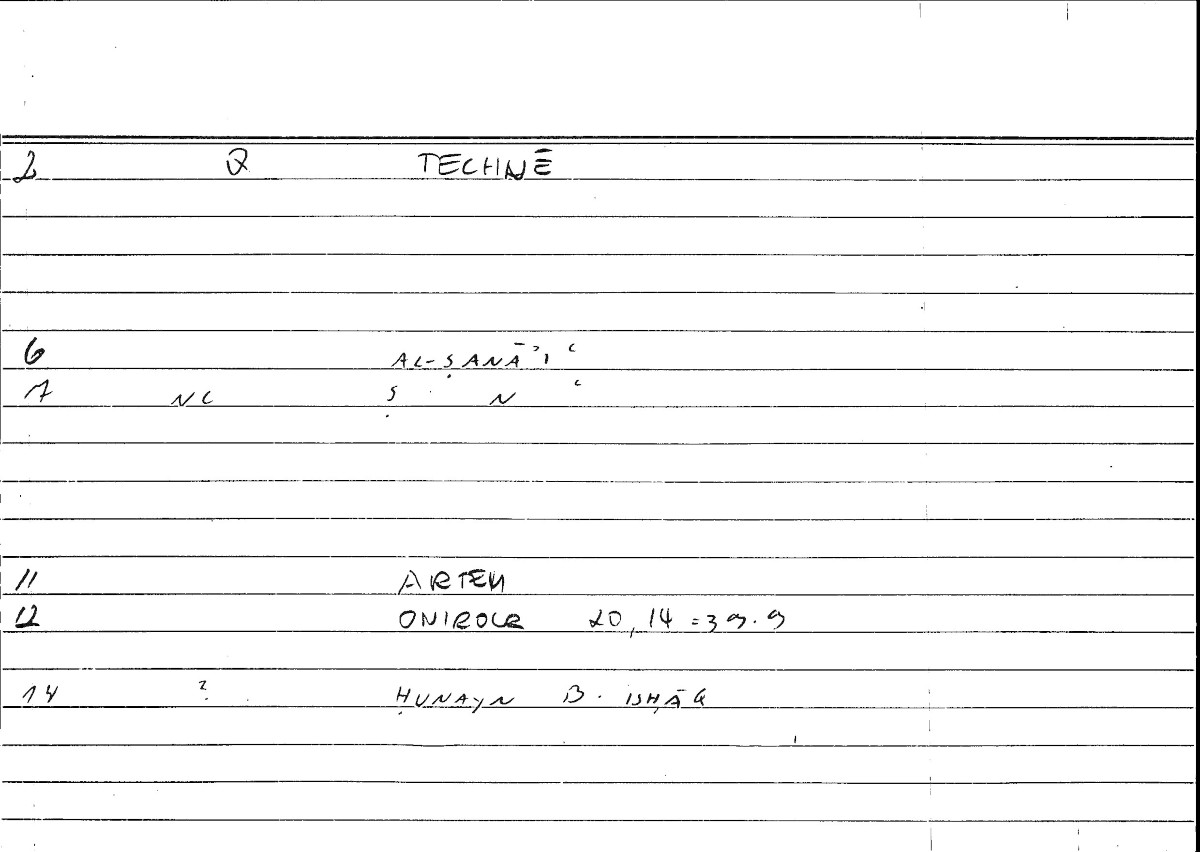 2 Q TECHNĒ
6 AL-ṢANĀʾIʿ
7 NC Ṣ N ʿ
11 ARTEM
12 ONIROCR 20,14 = 39.9
14 2 ḤUNAYN B. ISḤĀQ